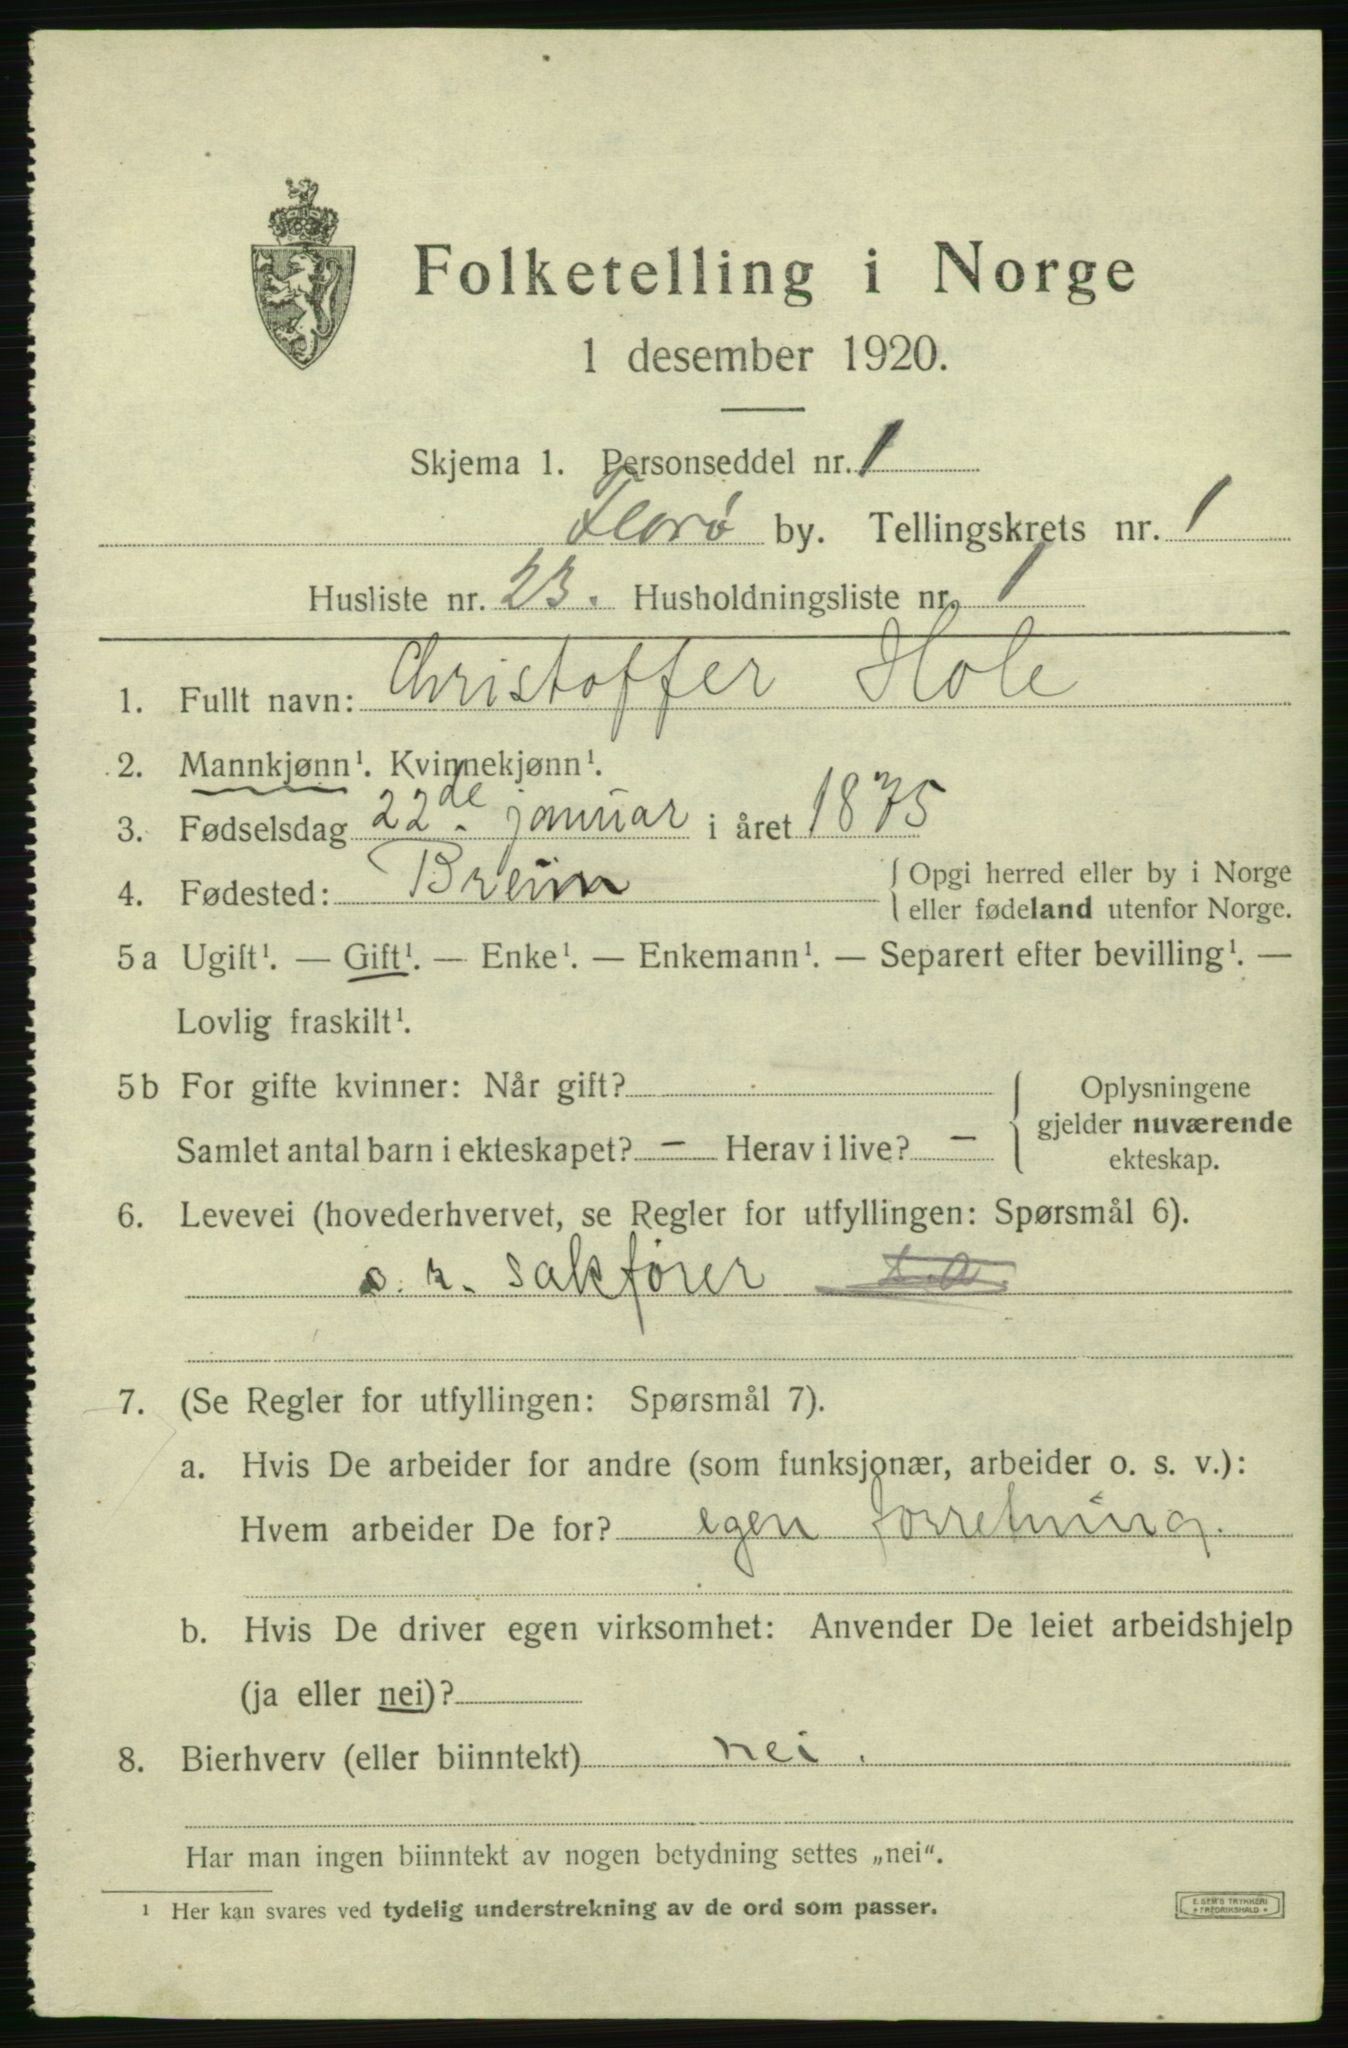 Folketelling i Norge
1 desember 1920.
Skjema 1. Personseddel nr. 1
Florø by. Tellingskrets nr. 1
Husliste nr. 23. Husholdningsliste nr. 1
1. Fullt navn: Christoffer Hole
2. Mannkjønn¹. Kvinnekjønn¹.
3. Fødselsdag 22de. januar i året 1875
4. Fødested: Breim { Opgi herred eller by i Norge
eller fødeland utenfor Norge.
5a Ugift¹. — Gift¹. — Enke¹. — Enkemann¹. — Separert efter bevilling¹. —
Lovlig fraskilt¹.
5b For gifte kvinner: Når gift?
Samlet antal barn i ekteskapet? — Herav i live? —
Oplysningene
gjelder nuværende
ekteskap.
6. Levevei (hovederhvervet, se Regler for utfyllingen: Spørsmål 6).
o. r. sakfører
7. (Se Regler for utfyllingen: Spørsmål 7).
a. Hvis De arbeider for andre (som funksjonær, arbeider o. s. v.):
Hvem arbeider De for? egen forretning.
b. Hvis De driver egen virksomhet: Anvender De leiet arbeidshjelp
(ja eller nei)?
8. Bierhverv (eller biinntekt) nei.
Har man ingen biinntekt av nogen betydning settes „nei“.
¹ Her kan svares ved tydelig understrekning av de ord som passer.
E. SEM'S TRYKKERI
FREDRIKSHALD